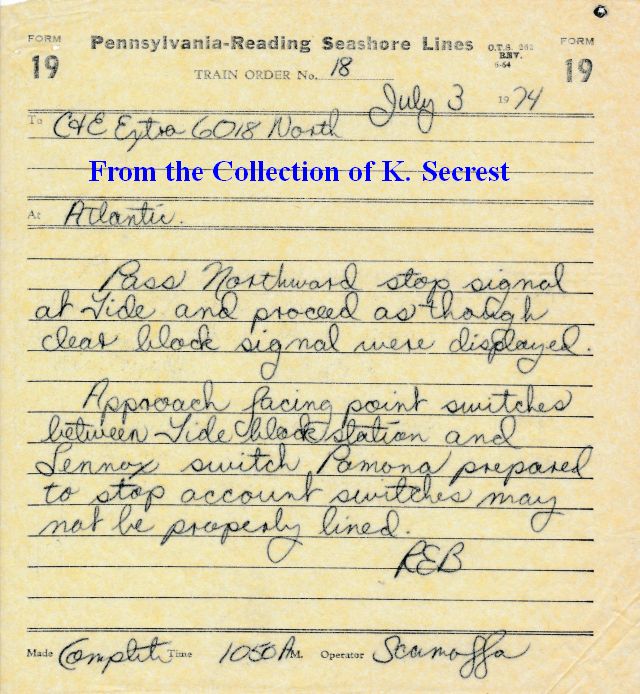 FORM 19 Pennsylvania-Reading Seashore Lines O.T.S. 262 REV. 6-64 FORM 19
TRAIN ORDER No. 18
July 3 1974
To C&E Extra 6018 North
From the Collection of K. Secrest
At Atlantic.
Pass Northward stop signal
at Tide and proceed as though
clear block signal were displayed.
Approach facing point switches
between Tide block station and
Lennox switch, Pamona prepared
to stop account switches may
not be properly lined.
REB
Made Complete Time 1050 A M. Operator